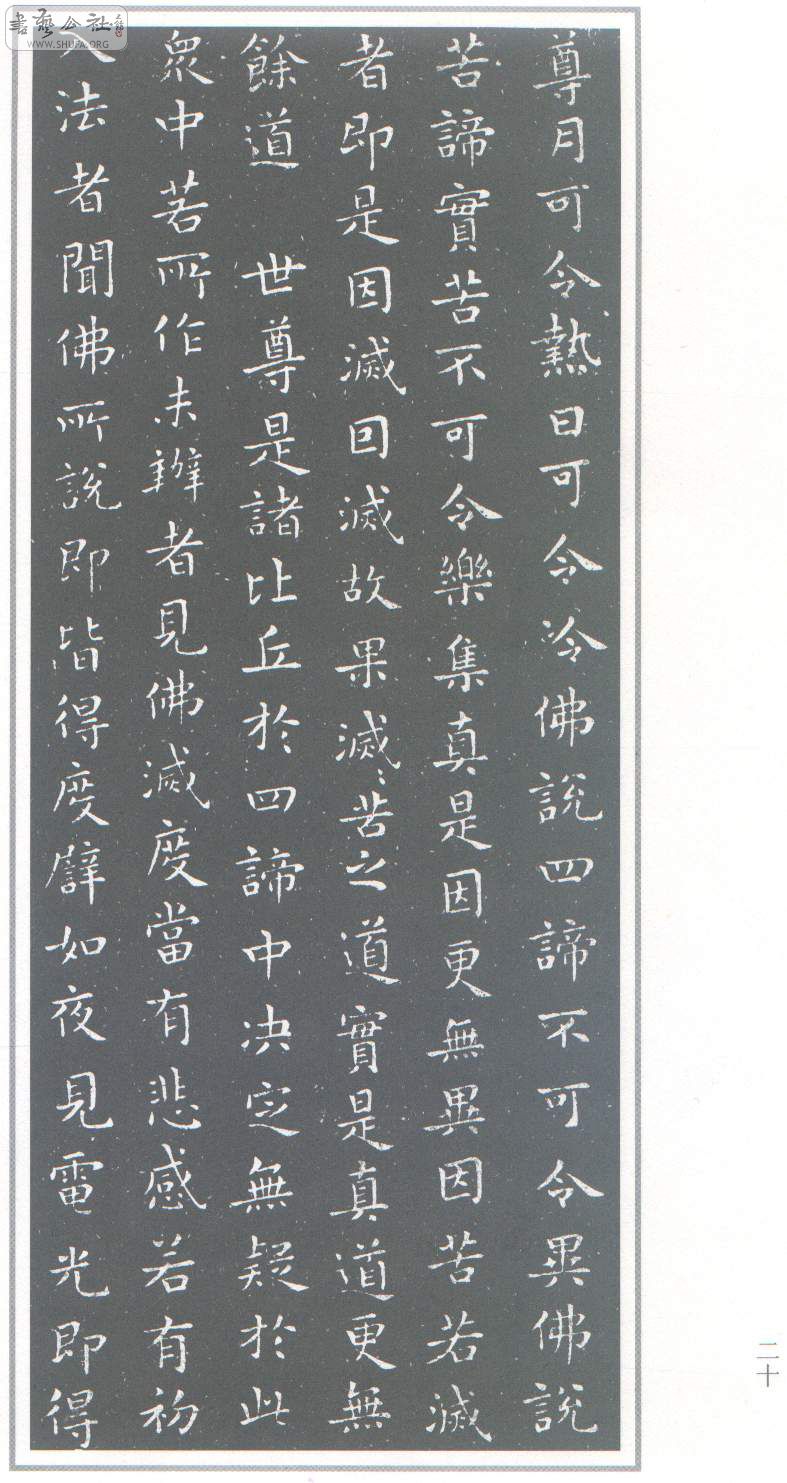 書藝公社
WWW.SHUFA.ORG
尊月可令熱日可令冷佛說四諦不可令異佛說
苦諦實苦不可令樂集真是因更無異因苦若滅
者即是因滅回滅故果滅〻苦之道實是真道更無
餘道　世尊是諸比丘於四諦中决定無疑於此
眾中若所作未辦者見佛滅度當有悲感若有初
入法者聞佛所說即皆得度譬如夜見電光即得
二十